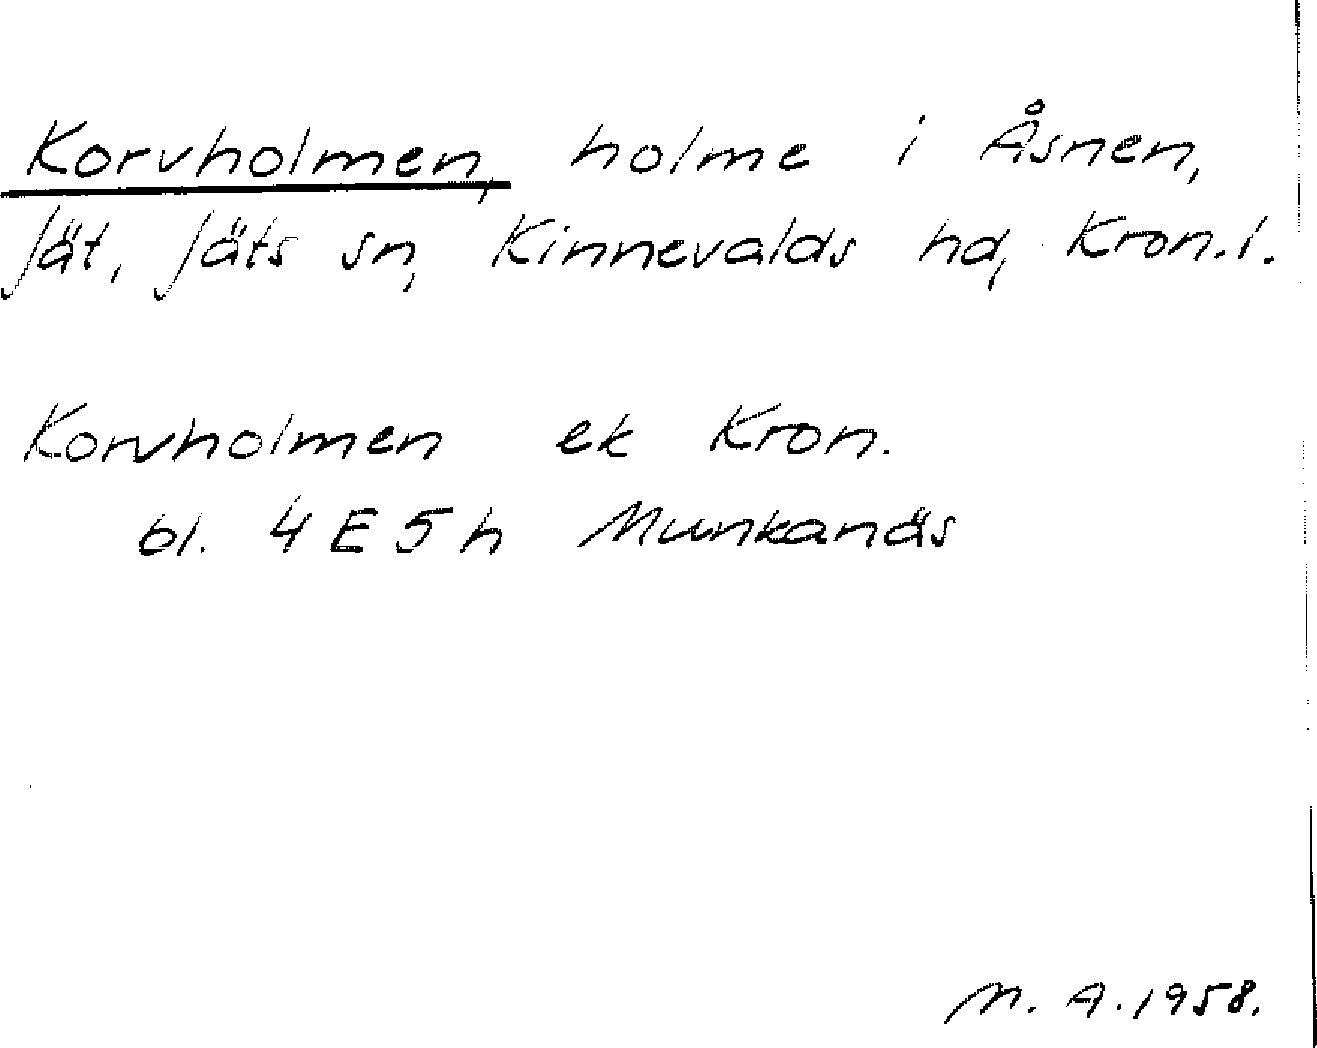 Korvholmen, holme i Åsnen,
Jät, Jäts sn, Kinnevalds hd, Kron.l.
Korvholmen ek Kron.
bl. 4 E 5 h Munkanäs
M. A. 1958.